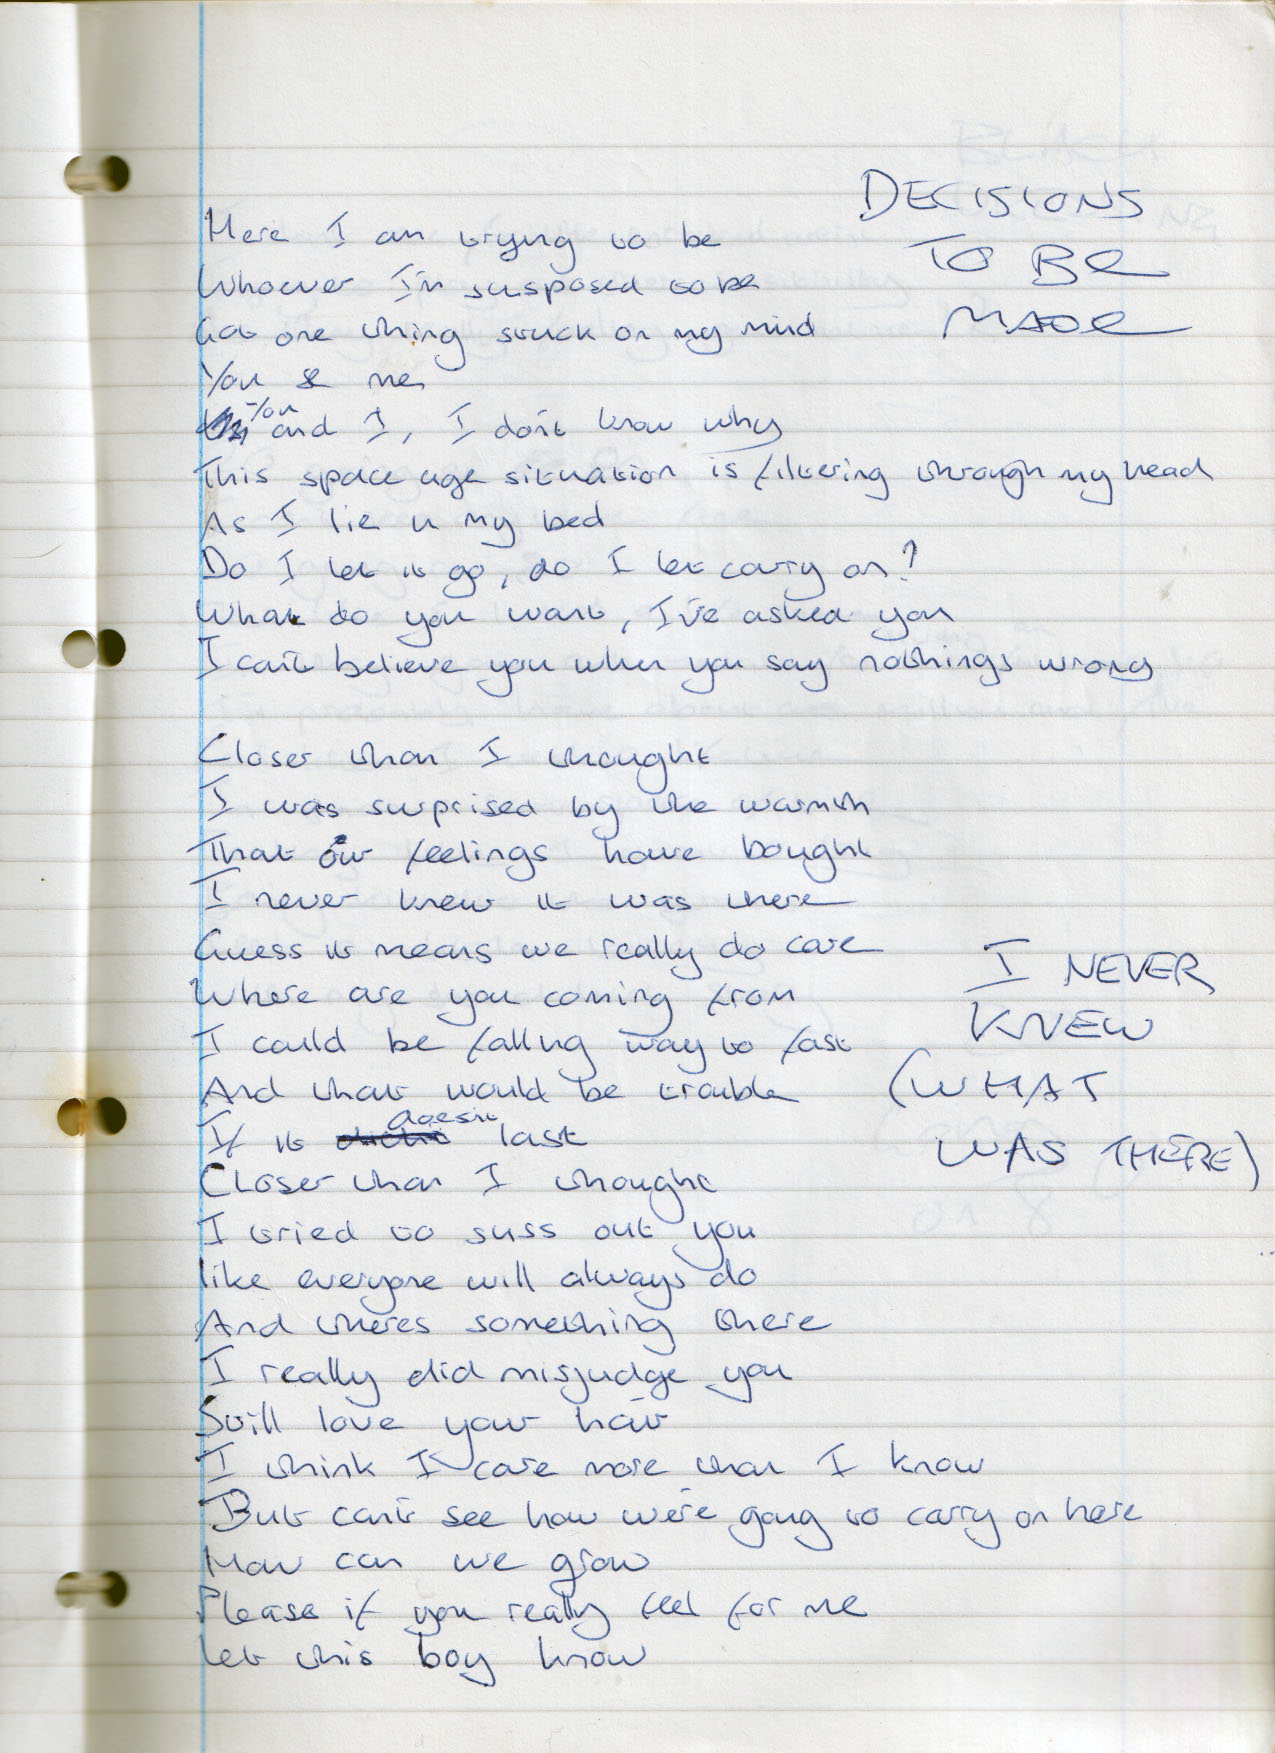 DECISIONS
TO BE
MADE
Here I am trying to be
Whoever I'm susposed to be
Got one thing stuck on my mind
You & me
You and I, I don't know why
This space age situation is filtering through my head
As I lie in my bed
Do I let it go, do I let carry on?
What do you want, I've asked you
I can't believe you when you say nothings wrong
Closer than I thought
I was surprised by the warmth
That our feelings have bought
I never knew it was there
Guess it means we really do care
Where are you coming from
I could be falling way to fast
And that would be trouble
If it doesn't last
I NEVER
KNEW
(WHAT
WAS THERE)
Closer than I thought
I tried to suss out you
like everyone will always do
And theres something there
I really did misjudge you
Still love your hair
I think I care more than I know
But can't see how we're going to carry on here
How can we grow
Please if you really feel for me
let this boy know